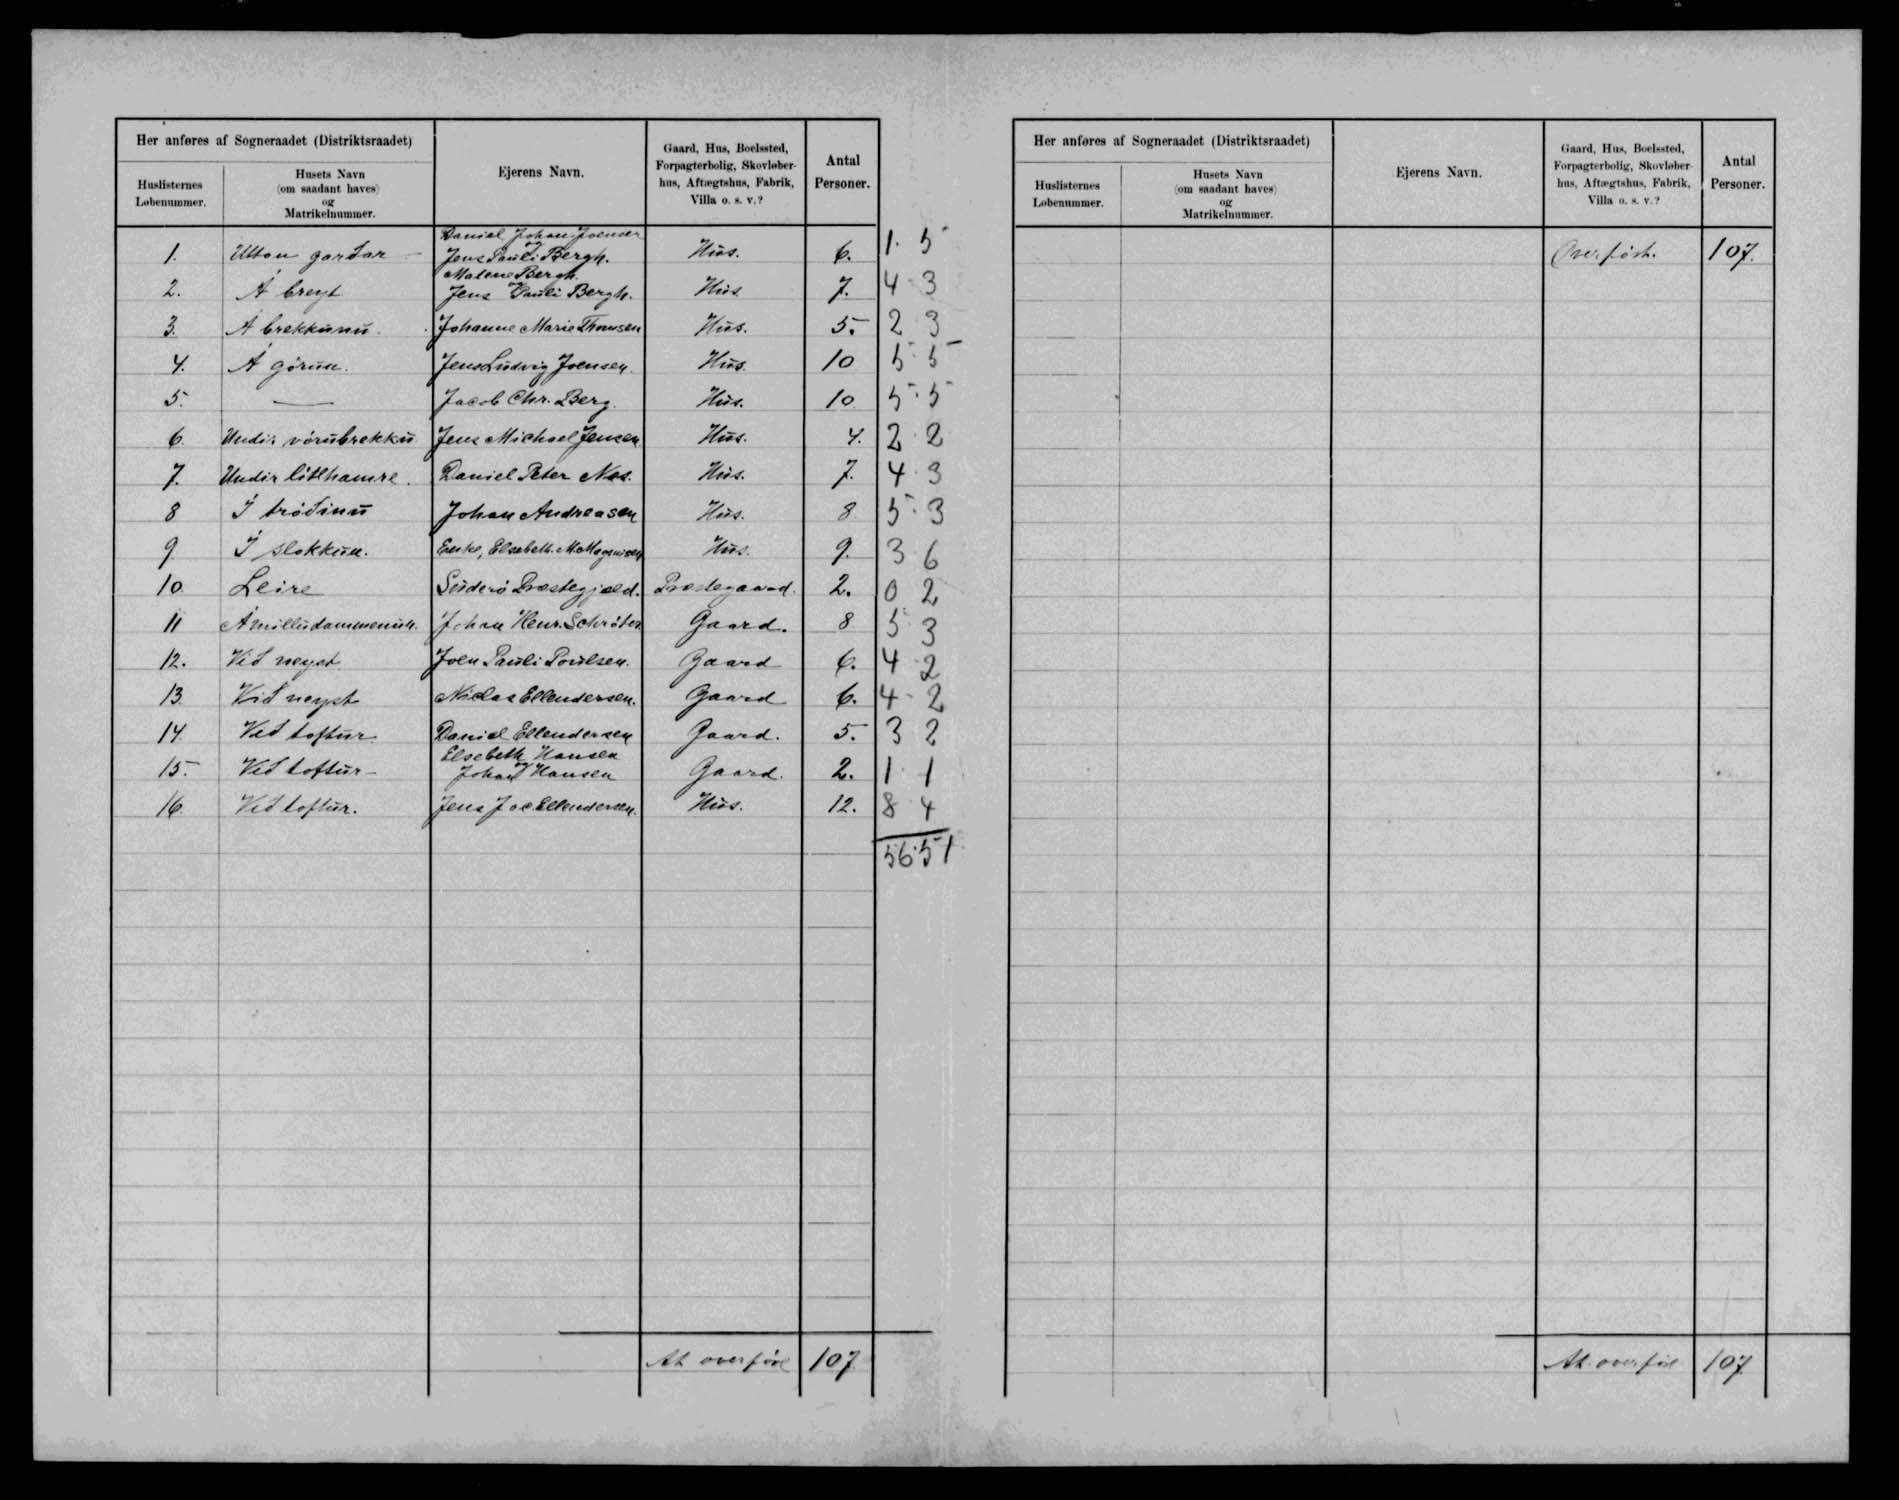 Her anføres af Sogneraadet (Distriktsraadet)
Huslisternes Løbenummer.
Husets Navn (om saadant haves) og Matrikelnummer.
Ejerens Navn.
Gaard, Hus, Boelssted, Forpagterbolig, Skovløberhus, Aftægtshus, Fabrik, Villa o. s. v.?
Antal Personer.
1. Uttan garðar Daniel Johan Joensen og Jens Pauli Bergh. Hus. 6. 1. 5
2. Á breyt Malene Bergh. og Jens Pauli Bergh. Hus 7. 4 3
3. Á brekkunu. Johanne Marie Thomsen Hus. 5. 2 3
4. Á gørun. Jens Ludvig Joensen. Hus. 10 5 5
5. — Jacob Chr. Berg. Hus. 10 5 5
6. Undir vørubrekku Jens Michael Jensen Hus. 4. 2 2
7. Undir lítlhamre. Daniel Peter Nes. Hus. 7. 4 3
8 Í trøðinu Johan Andreasen Hus. 8 5 3
9 Í slokkun. Enke, Elsebeth. M. Magnussen Hus. 9. 3 6
10 Leire Suderø Præstegjæld. Præstegaard. 2. 0 2
11 Á milludammenun. Johan Henr. Schrøter Gaard. 8 5 3
12. Við neyst Joen Pauli Poulsen. Gaard 6. 4 2
13. Við neyst Niclas Ellendersen. Gaard 6. 4 2
14 Við toftur Daniel Ellendersen Gaard. 5. 3 2
15. Við toftur Elsebeth Hansen og Johan Hansen Gaard. 2. 1 1
16. Við toftur. Jens Joe Ellendersen. Hus. 12. 8 4
56 51
At overføre 107
Her anføres af Sogneraadet (Distriktsraadet)
Huslisternes Løbenummer.
Husets Navn (om saadant haves) og Matrikelnummer.
Ejerens Navn.
Gaard, Hus, Boelssted, Forpagterbolig, Skovløberhus, Aftægtshus, Fabrik, Villa o. s. v.?
Antal Personer.
Overført. 107.
At overføre 107